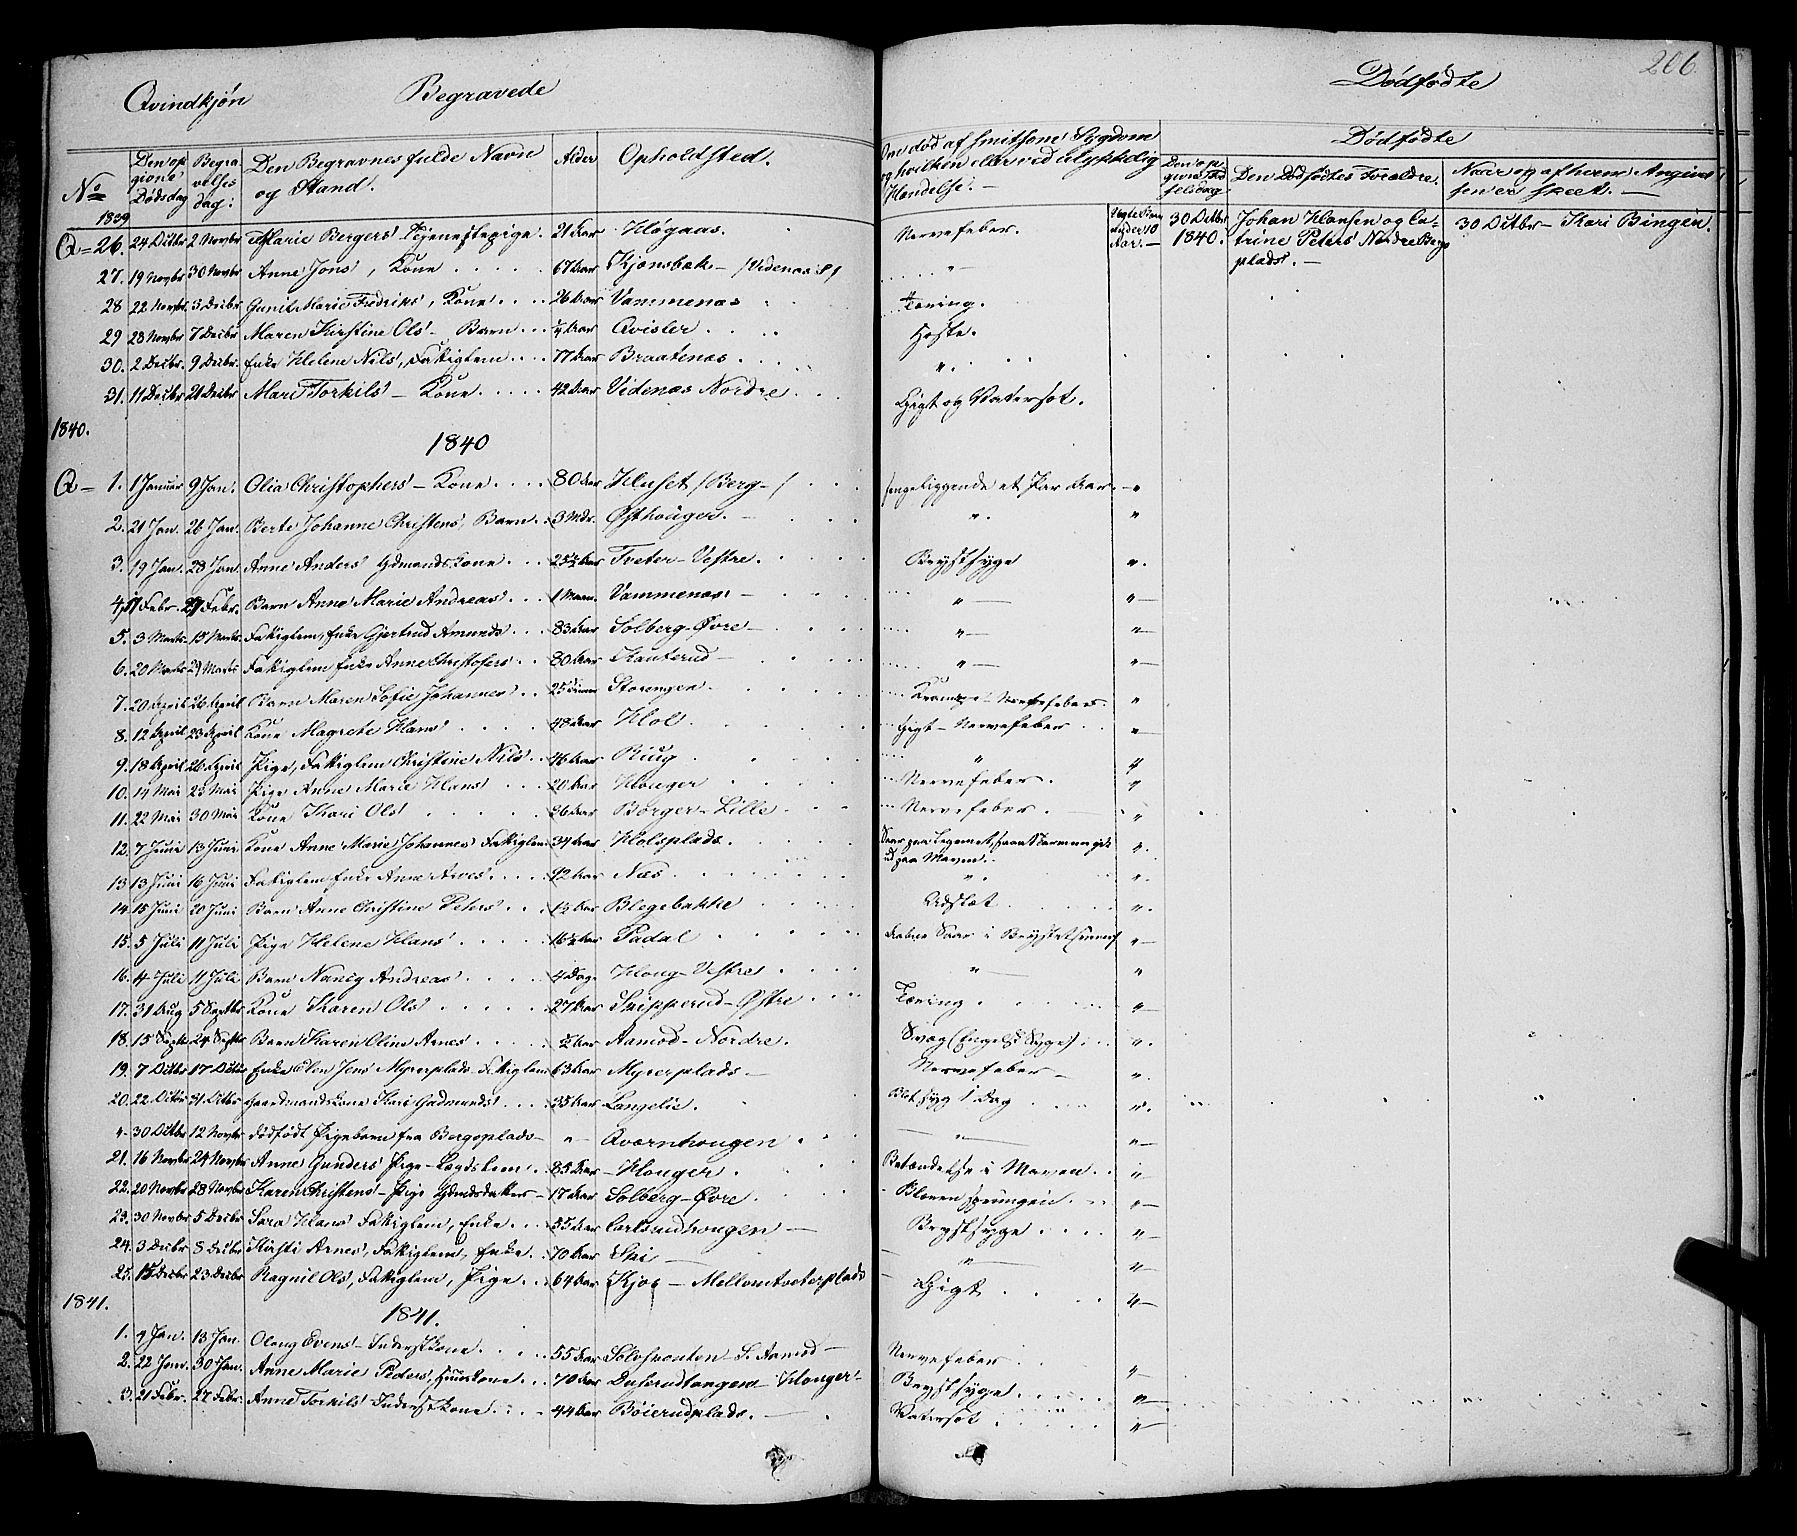 206.
Qvindkjøn Begravede Dødfødte
No Den opgivne Dødsdag Begravelses dag: Den Begravnes fulde Navn og Stand. Alder Opholdsted. Om død af smitsom Sygdom og hvilken eller ved ulykkelig Hændelse. — Dødfødte
Den opgivne Fødselsdag Den Dødfødtes Forældre. Naar og af hvem Angivelsen er skeet. —
1839
Q - 26. 24 Octbr 2 Novbr Marie Bergers' Tjenestepige. 21 Aar Høgaas. Nervefeber. 30 Octbr 1840. Johan Hansen og Catrine Peters' Nordre Bergs plads. — 30 Octbr — Kari Bingen.
27. 19 Novbr 30 Novbr Anne Jons', Kone 67 Aar Kjønsbæk — "
28 22 Novbr 3 Decbr Gunil Marie Fredriks', Kone 26 Aar Vammenæs Tæring.
29 28 Novbr 7 Decbr Maren Kirstine Ols' — Barn ¼ Aar Qvister Hoste.
30. 2 Decbr 9 Decbr Enke Helene Nils', Fattiglem 77 Aar Braatenæs ".
31. 11 Decbr 21 Decbr Mari Torkils' — Kone 42 Aar Videnæs Nordre Gigt og Vatersot.
1840.
1840
Q - 1. 1 Januar 9 Jan. Olia Christophers' — Kone 80 Aar Huset /Berg-/ sengeliggende et Par Aar. — "
2. 21 Jan. 26 Jan. Berte Johanne Christens', Barn 3 Mdr. Østhouger. — " "
3. 19 Jan. 28 Jan. Anne Anders' Gdmandskone 25½ Aar Tveter — Vestre. Brystsyge ".
4. 17 Febr. 27 Febr. Barn Anne Marie Andreas' 1 Maan. Vammenæs — " — " —
5. 3 Marts 15 Marts Fattiglem, Enke Gjertrud Amunds 83 Aar Solberg — Øvre — " — " —
6. 20 Marts 29 Marts Fattiglem Enke Anne Christofers' 80 Aar Kanterud — " — " —
7. 20 April 26 April Barn Maren Sofie Johannes' 25 Timer Storengen. Krampe — Nervefeber "
8. 12 April 23 April Kone Magrete Hans' 48 Aar Hol Gigt — Nervefeber " —
9. 18 April 26 April Pige, Fattiglem Christine Nils' 46 Aar Riug " "
10. 14 Mai 23 Mai Pige Anne Marie Hans' 20 Aar Houger Nervefeber. "
11. 22 Mai 30 Mai Kone Kari Ols' 36 Aar Børger — Lille Nervefeber. "
12. 7 Juni 13 Juni Kone Anne Marie Johannes' Fattiglem 34 Aar Holsplads. Saar paa Legemet, saa Tarmen gik ud paa Maven. ".
13. 13 Juni 16 Juni Fattiglem Enke Anne Arnes' 92 Aar Næs ". ".
14. 15 Juni 20 Juni Barn Anne Christine Peters' 1½ Aar Blegebakke Udslæt ".
15. 5 Juli 11 Juli Pige Helene Hans' 16½ Aar Padal Aabne Saar i Brystet " —
16. 4 Juli 11 Juli Barn Nancy Andreas' 4 Dage Houg — Vestre " — "
17. 31 Aug 5 Septbr Kone Karen Ols' 27 Aar Skipperud — Østre Tæring " —
18. 15 Septbr 24 Septbr Barn Karen Oline Arnes' ½ Aar Aamod — Nordre. Svag (Engelsk Syge) ".
19. 7 Octbr 17 Octbr Enke Elen Jens' Myrerplads Fattiglem 63 Aar Myrerplads — Nervefeber — ".
20. 22 Octbr 31 Octbr Gaardmandskone Kari Gudmunds' 35 Aar Langelie Blot syg 1 Dag ".
" 30 Octbr 12 Novbr dødfødt Pigebarn fra Bergsplads — " Qværnhougen — " — " —
21. 16 Novbr 24 Novbr Anne Gunders' Pige — Lægdslem 85 Aar Houger. Betændelse i Maven "
22. 20 Novbr 28 Novbr Karen Christens' — Pige Gdmdsdatter — 17 Aar Solberg — Øvre Blæren sprungen " —
23. 30 Novbr 5 Decbr Sara Hans' Fattiglem, Enke 55 Aar Carlsrudhougen — Brystsyge " —
24. 3 Decbr 8 Decbr Kirsti Arnes', Fattiglem, Enke 70 Aar Ski — " — " —
25. 15 Decbr 23 Decbr Ragnil Ols', Fattiglem, Pige 64 Aar Kjos — Mellomtveterplads Gigt " —
1841.
1841.
1. 4 Jan. 13 Jan. Oloug Evens' — Inderstkone 55 Aar S. Aamod — Nervefeber
2. 22 Jan. 30 Jan. Anne Marie Peders', Huuskone 70 Aar Dusrudtangen — Houger — Brystsyge " —
3. 21 Febr. 27 Febr. Anne Torkils' Inderstkone 44 Aar Bøierudplads. — Vatersot " —